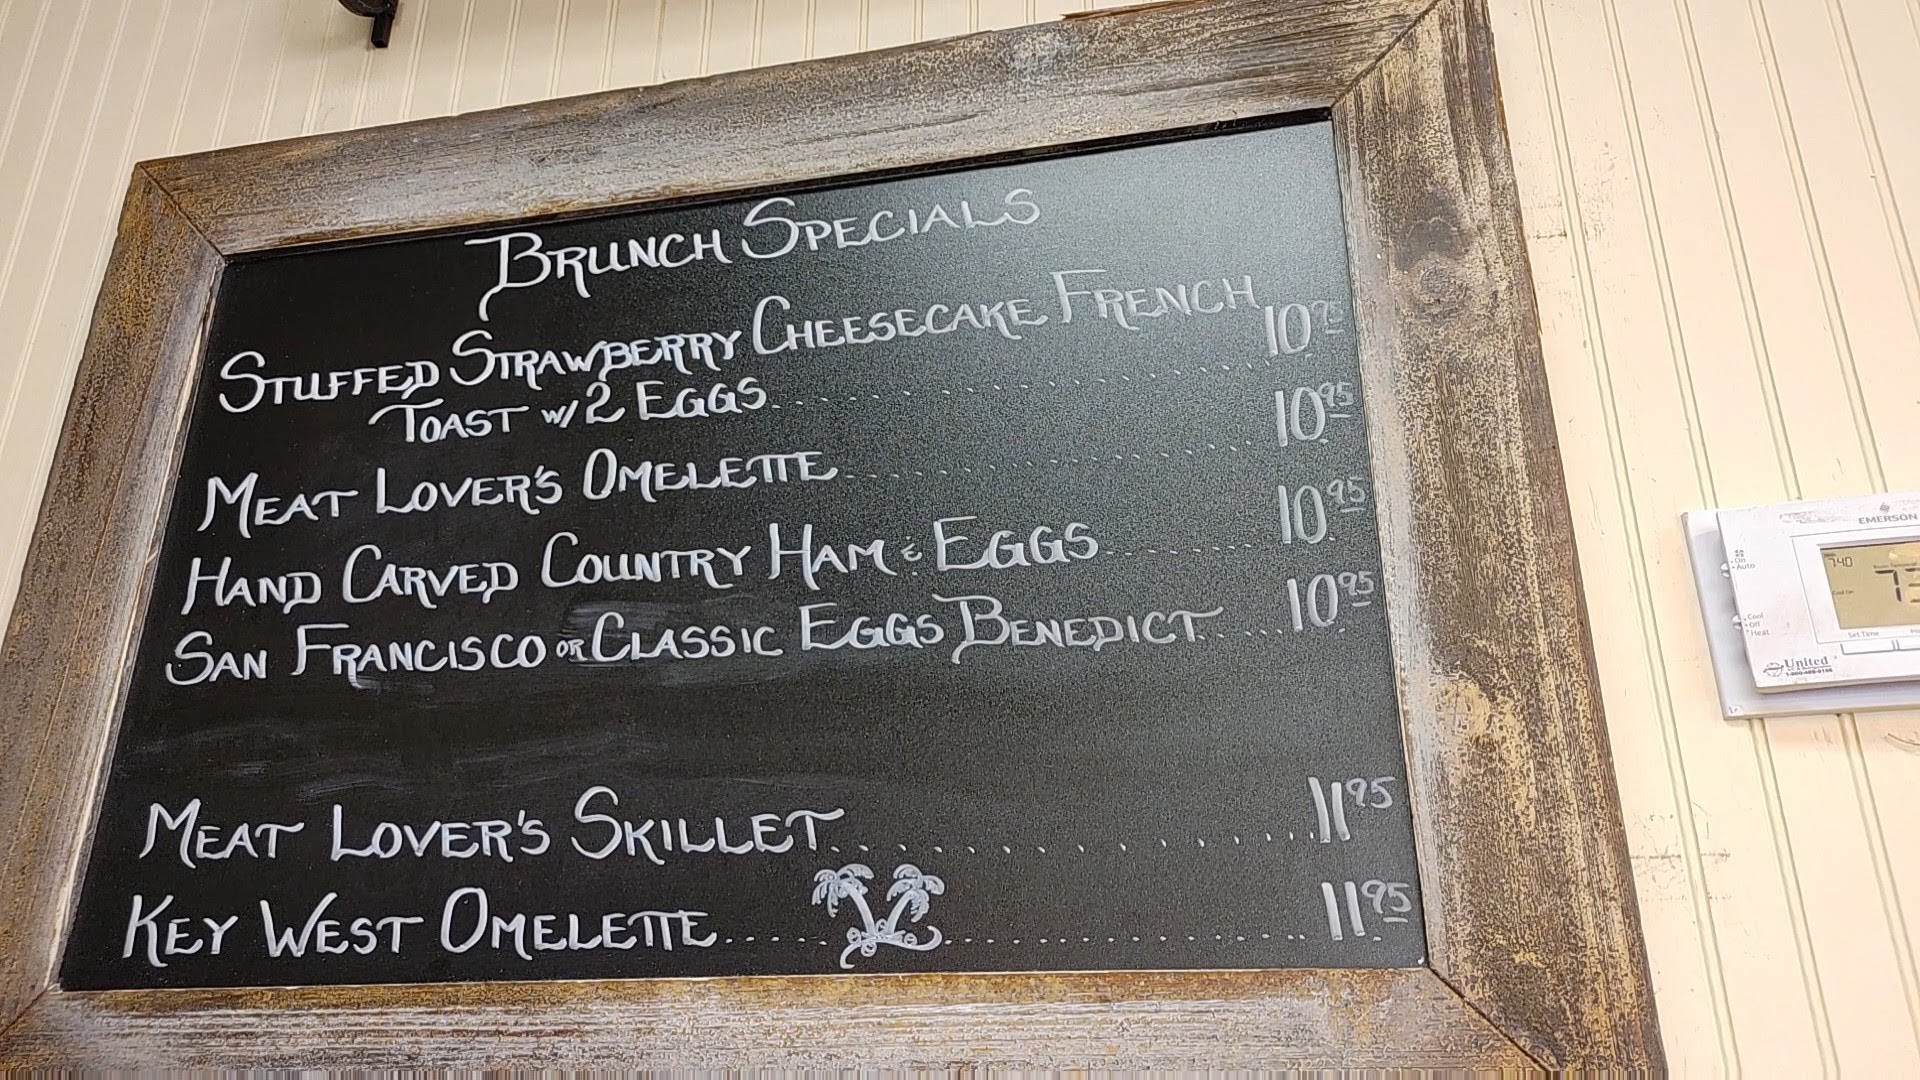 BRUNCH SPECIALS
STUFFED STRAWBERRY CHEESECAKE FRENCH
TOAST W/ 2 EGGS............ 10 95
MEAT LOVER'S OMELETTE............ 10 95
HAND CARVED COUNTRY HAM & EGGS........ 10 95
SAN FRANCISCO OR CLASSIC EGGS BENEDICT..... 10 95
MEAT LOVER'S SKILLET............ 11 95
KEY WEST OMELETTE............ 11 95
EMERSON
On
Auto
7:40
Cool On
Cool
Off
Heat
Set Time
United